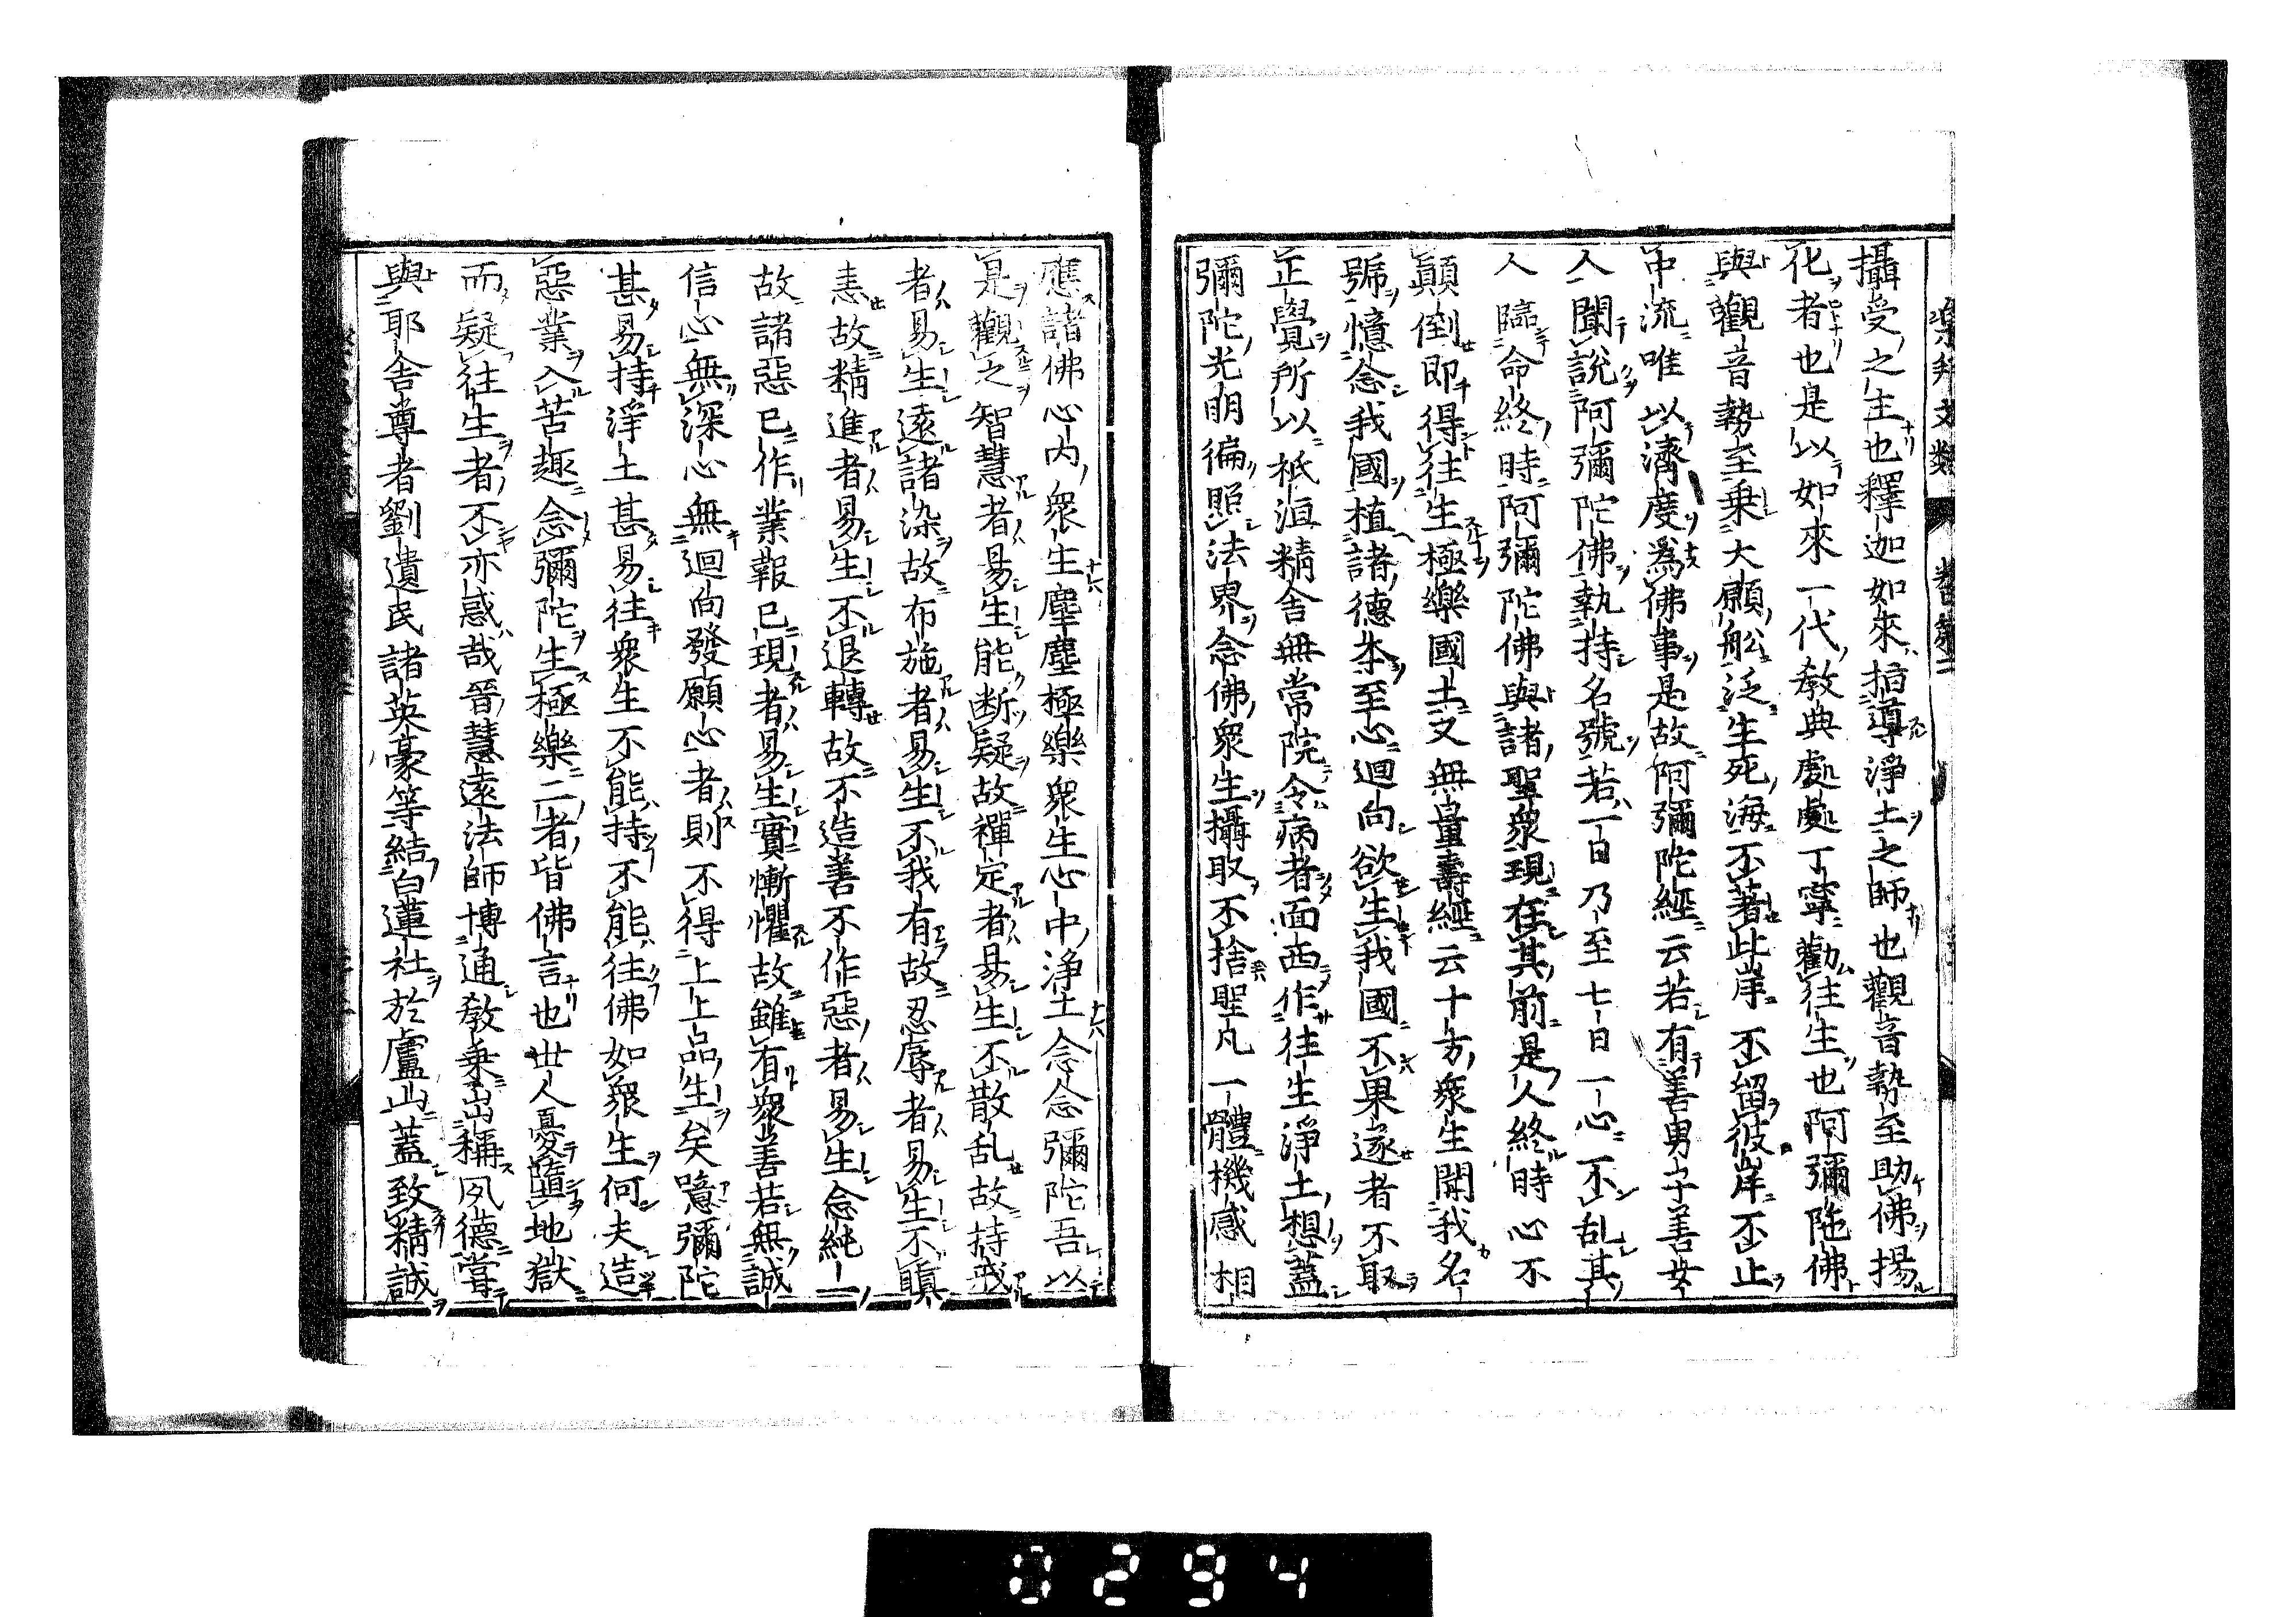 攝受之主也釋迦如來指導淨土之師也觀音勢至助佛揚
化者也是以如來一代教典處處丁寧勸往生也阿彌陁佛
與觀音勢至乗大願舩泛生死海不著此岸不留彼岸不止
中流唯以濟度爲佛事是故阿彌陀經云若有善男子善女
人聞說阿彌陀佛執持名號若一日乃至七日一心不乱其
人臨命終時阿彌陀佛與諸聖衆現在其前是人終時心不
顛倒即得往生極樂國土又無量壽經云十方衆生聞我名
號憶念我國植諸德夲至心迴向欲生我國不果遂者不取
正覺所以祇洹精舎無常院令病者面西作往生淨土想蓋
彌陀光明徧照法界念佛衆生攝取不捨聖凡一體機感相
應諸佛心内衆生塵塵極樂衆生心中淨土念念彌陀吾以
是觀之智慧者易生能断疑故禪定者易生不散乱故持戒
者易生遠諸染故布施者易生不我有故忍辱者易生不瞋
恚故精進者易生不退轉故不造善不作惡者易生念純一
故諸惡已作業報已現者易生實慚懼故雖有衆善若無誠
信心無深心無迴向發願心者則不得上上品生矣噫彌陀
甚易持淨土甚易往衆生不能持不能往佛如衆生何夫造
惡業入苦趣念彌陀生極樂二者皆佛言也世人憂墮地獄
而疑往生者不亦惑哉晉慧遠法師博通教乗尚稱夙德嘗
與耶舎尊者劉遺民諸英豪等結白蓮社於廬山蓋致精誠
0294